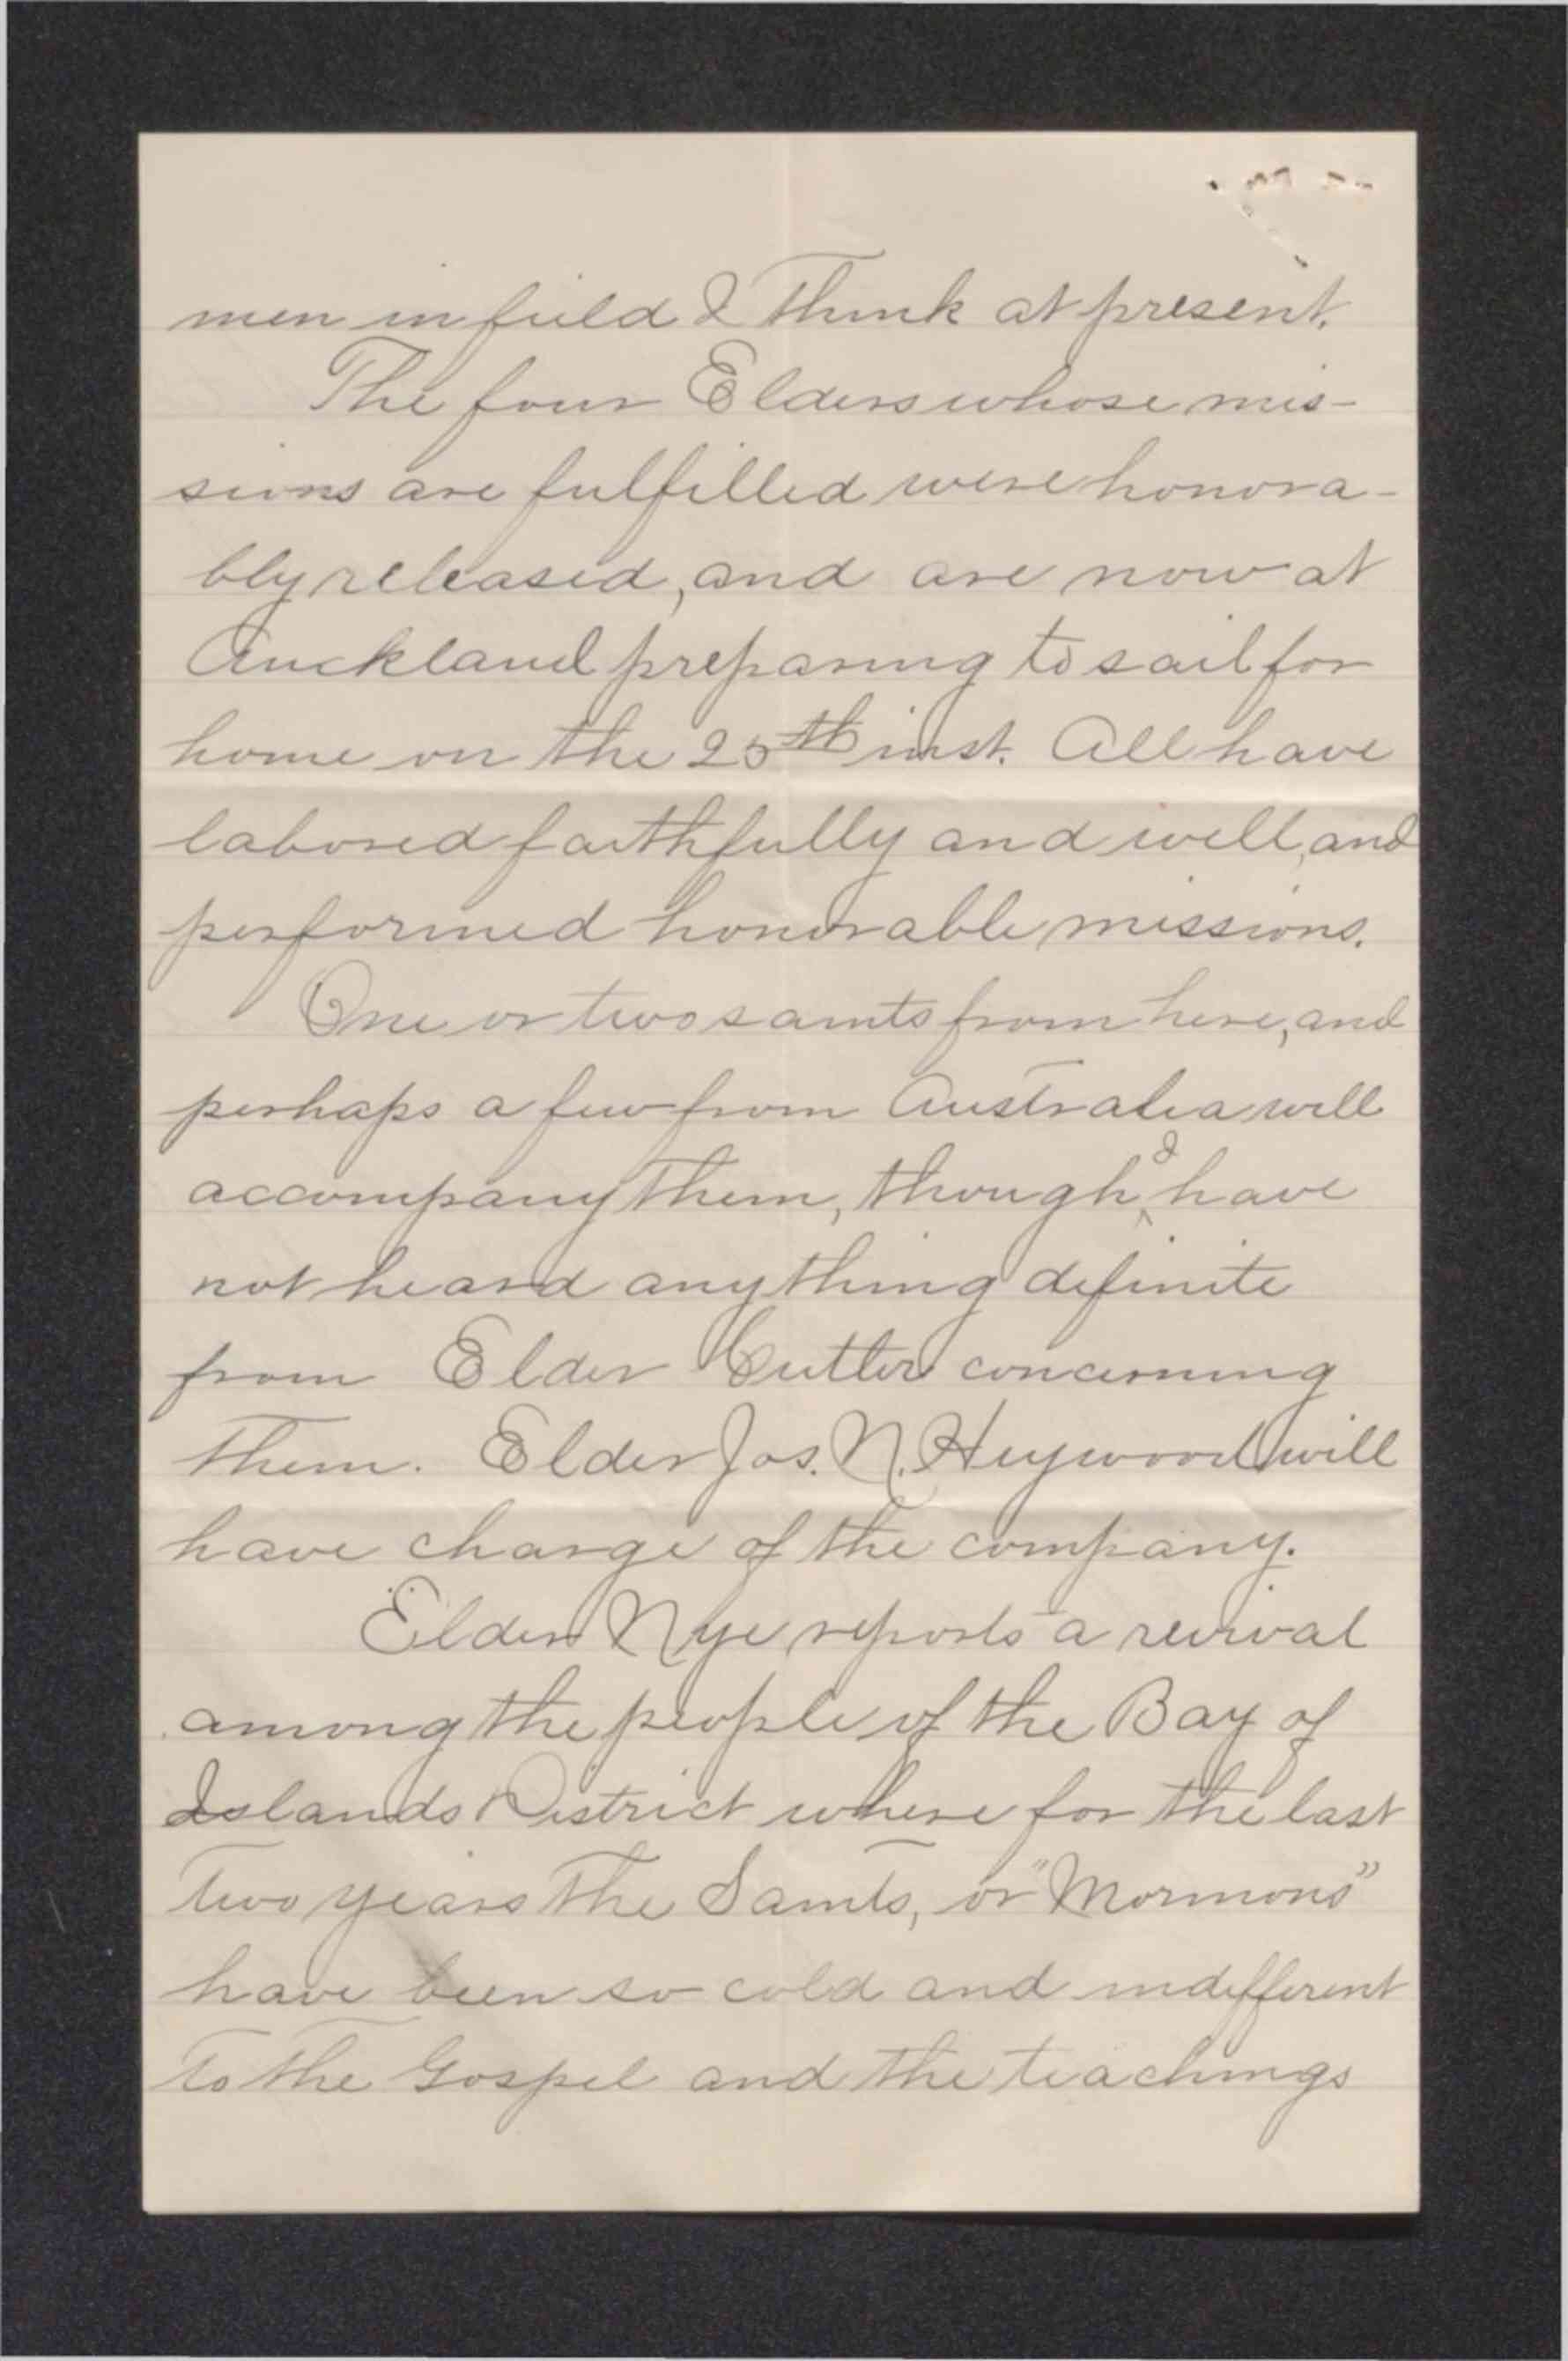 men in field I think at present.
The four Elders whose mis-
sions are fulfilled were honora-
bly released, and are now at
Auckland preparing to sail for
home on the 25th inst. All have
labored faithfully and well, and
performed honorable missions.
One or two saints from here, and
perhaps a few from Australia will
accompany them, though I have
not heard anything definite
from Elder Cutler concerning
them. Elder Jos. N. Heywood will
have charge of the company.
Elder Nye reports a revival
among the people of the Bay of
Islands District where for the last
two years the Saints, or "Mormons"
have been so cold and indifferent
to the Gospel and the teachings